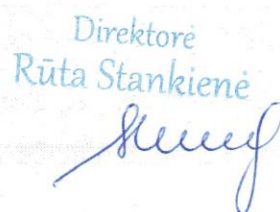 Direktorė
Rūta Stankienė